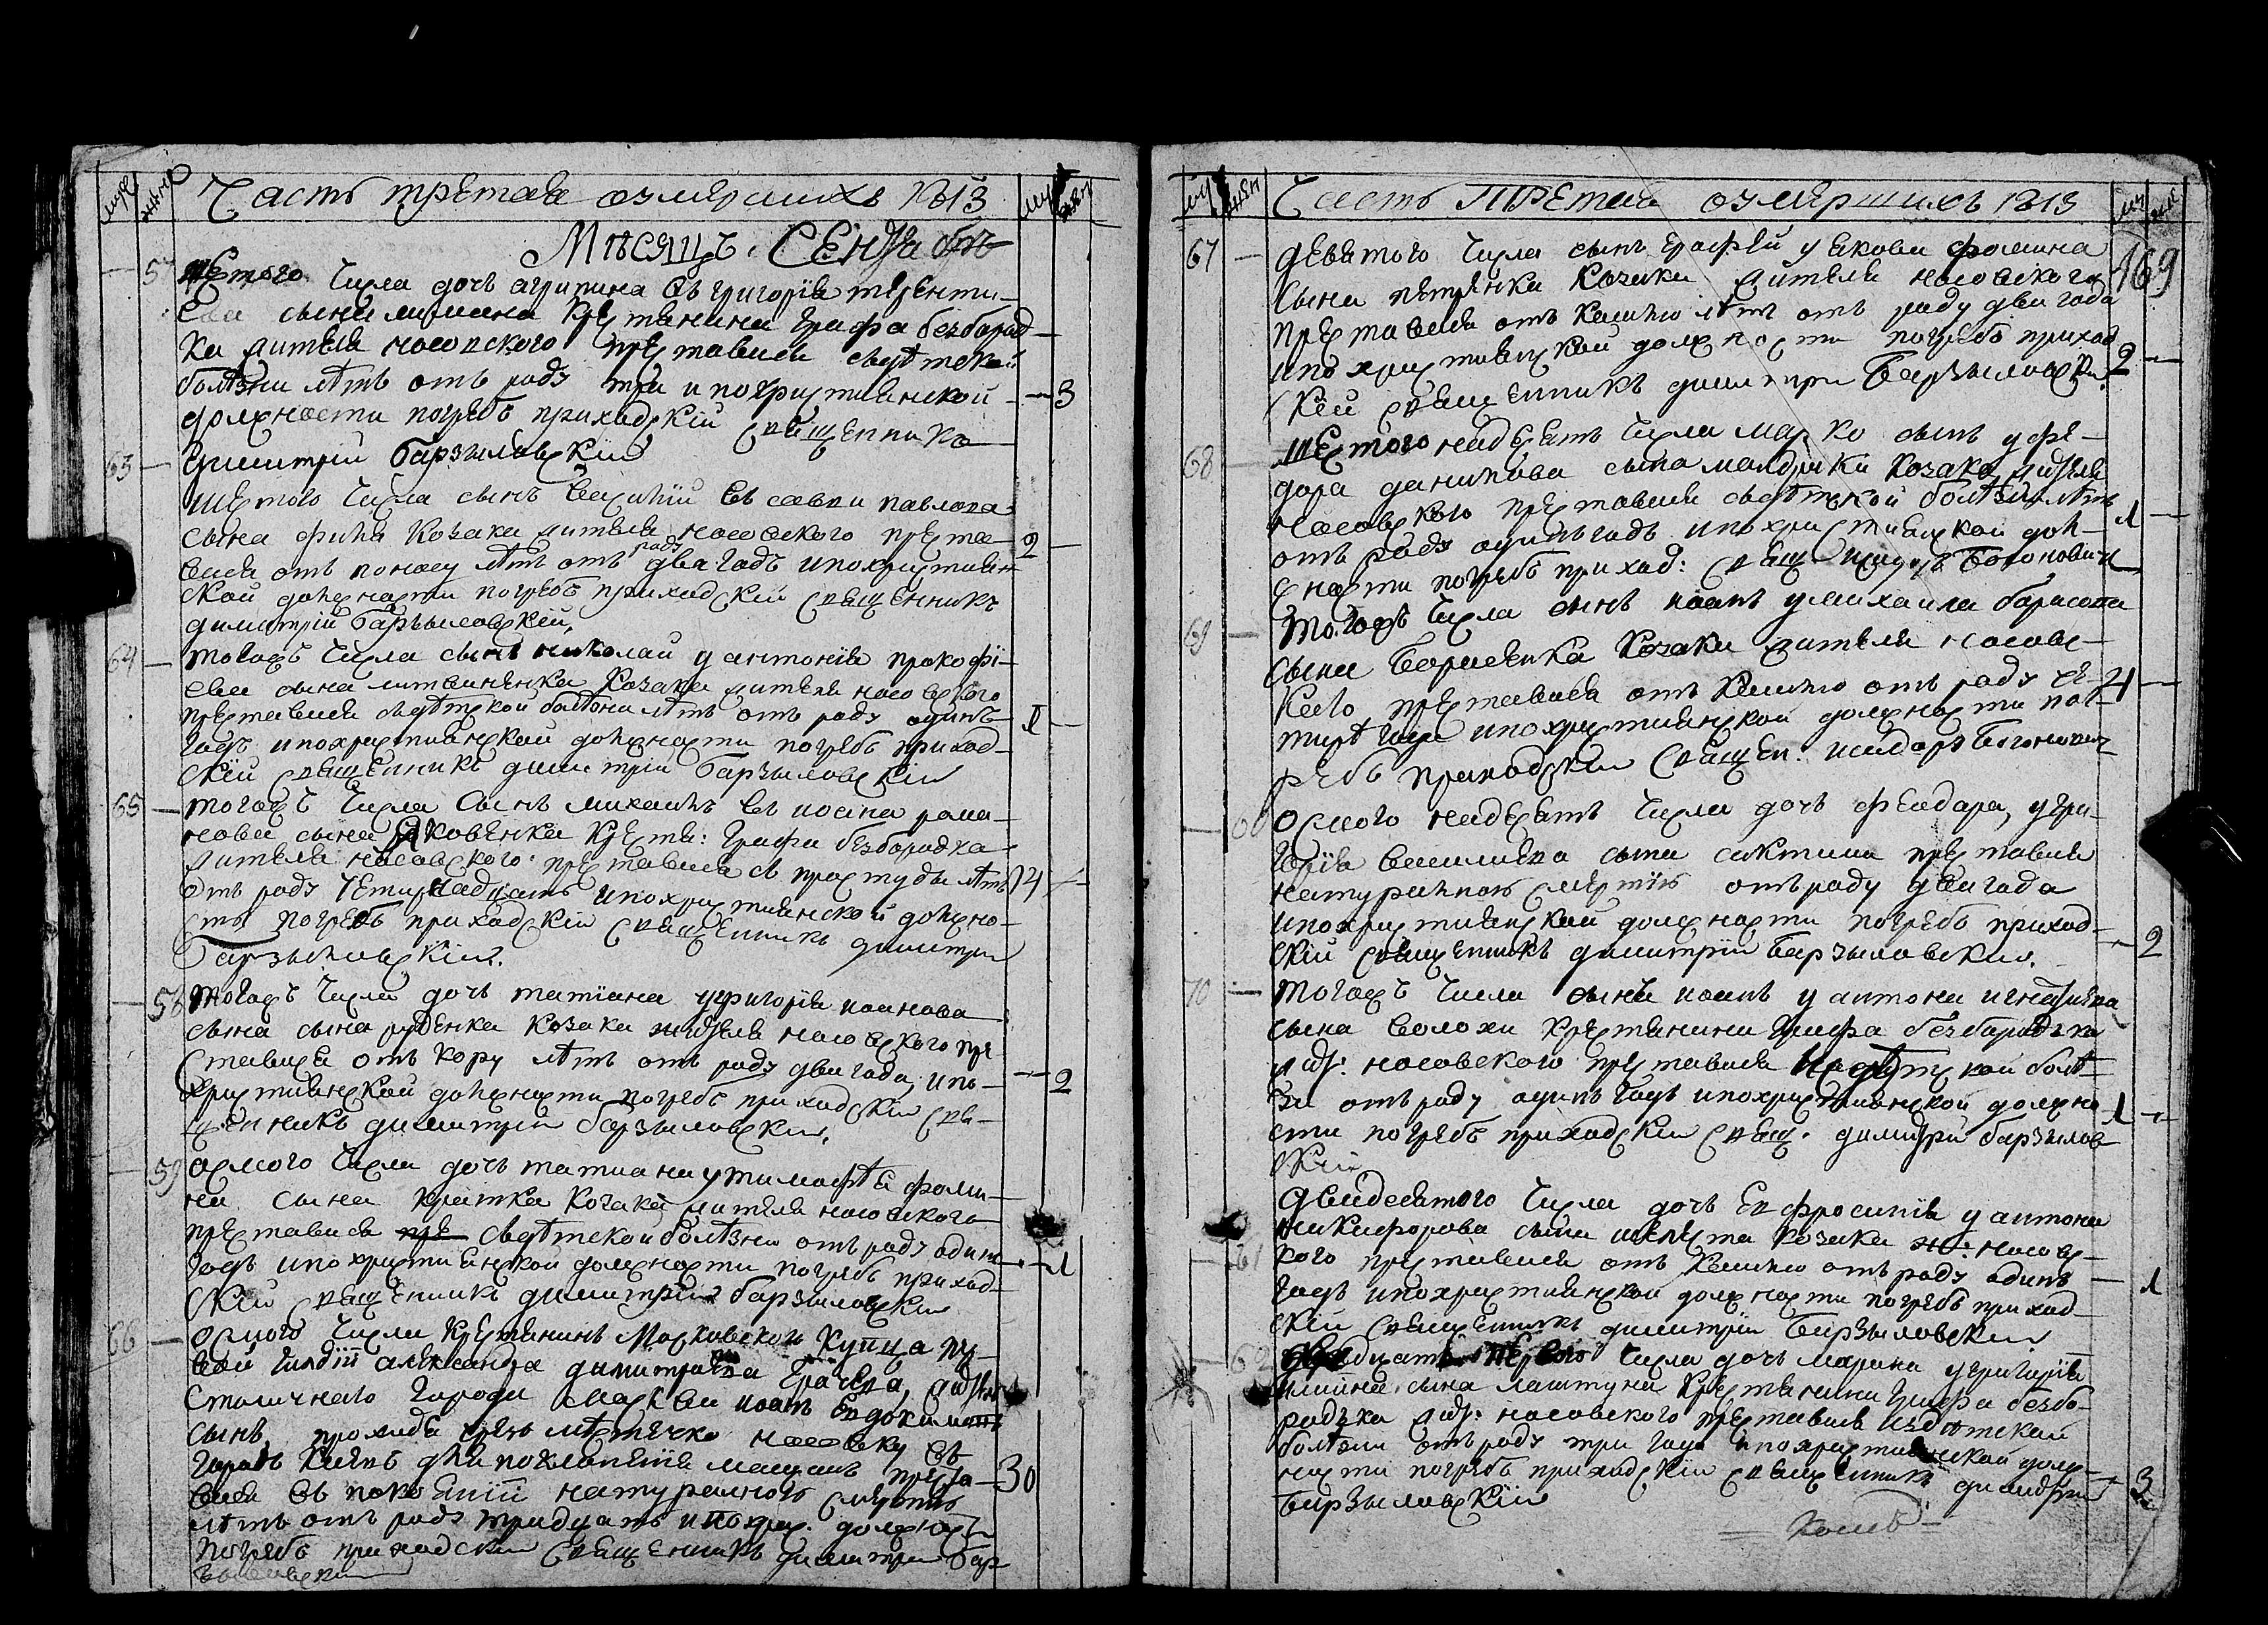 муж жен Часть третая оумершихъ 1813 муж жен
Мѣсяцъ Сентябрь
57 Шестого числа дочь агрипина въ григорїя теренти-
ева сына крестянина графа безбород-
ка жителя носовского преставися съ дѣтской
болѣзни лѣтъ отъ роду три и по християнской - 3
должности погребъ приходскїй священникъ
димитрїй барзыловскїй
63 Шестого числа сынъ василїй въ савви павлова
сына козака жителя носовского преста- 2
вися отъ поносу лѣтъ отъ роду два года и по християн-
ской должности погребъ приходскїй священникъ
димитрїй барзыловскїй.
64 Тогожъ числа сынъ николай у антонїя прокофї-
ева сына литвиненка козака жителя носовского
преставися съ дѣтской болѣзни лѣтъ отъ роду одинъ 1
годъ и по християнской должности погребъ приход-
скїй священникъ димитрїй барзыловскїй
65 Тогожъ числа сынъ михаилъ въ иосипа рома-
нова сына яковенка крестя: графа безбородка
жителя носовского преставися съ простуды лѣтъ 14
отъ роду четирнадцать и по християнской должно-
сти погребъ приходскїй священникъ димитрїй
Барзыловскїй.
58 Тогожъ числа дочь татїана у григорїя иоанова
сына сына руденка козака жителя носовского пре-
ставися отъ кору лѣтъ отъ роду два года, и по - 2
християнской должности погребъ приходскїй свя-
щенникъ димитрїй барзыловскїй.
59 Осмого числа дочь татиана у тимофѣя фоми-
на сына козака жителя носовского
преставися пре съ дѣтской болѣзни отъ роду одинъ
годъ и по християнской должности погребъ приход- 1
скїй священникъ димитрїй барзыловскїй
66 Осмого числа крестянинъ Московского купца пер-
вой гилдїи александра димитрїева грачева, жител
столичнаго города москви иоанъ евдокимовъ
сынъ, проходя чрезъ мѣстечко носовку въ
городъ киевъ для поклонения мощамъ преста- 30
вися въ натуралною смертию
лѣтъ отъ роду тридцать и по хрис. должности
погребъ приходскїй священникъ димитрїй бар-
зыловскїй
муж жен Часть Третая оумершихъ 1813 муж жен
67 Девятого числа сынъ ерофей у якова фомина 169
сына петренка козака жителя носовского
преставися отъ кашлю лѣтъ отъ роду два года
и по християнской должности погребъ приход 2
скїй священникъ димитри Барзыловскїй.
68 Шестогонадесять числа марко сынъ у фе-
дора данилова сына козака жителя
носовского преставися съ дѣтской болѣзни лѣтъ
отъ роду одинъ годъ и по християнской дол- 1
жности погребъ приход: свящ. исидоръ Богонович
69 Тогожъ числа сынъ иоанъ у михаила борисова
сына Борисенка козака жителя носовс-
каго преставися отъ кашлю отъ роду че- 4
тирѣ года и по християнской должности пог-
ребъ приходскїй священ. исидоръ Богонович
60 Осмогонадесять числа дочь феодора, у гри-
горїя василиева сына преставися
натуралною смертїю отъ роду два года
и по християнской должности погребъ приход-
скїй священникъ димитрїй Барзыловскїй. 2
70 Тогожъ числа сынъ иоанъ у антона игнатиева
сына волохи крестянина графа безбородка
жит: носовского преставися из дѣтской болѣ-
зи отъ роду одинъ годъ и по християнской должно 1
сти погребъ приходскїй свящ. димитрїй барзылов
скїй
Двадесятого числа дочь евфросинїя у антона
никифорова сына шелеста козака жи: носовс-
61 кого преставися отъ кашлю отъ роду одинъ 1
годъ и по християнской должности погребъ приход
скїй священникъ димитрїй Барзыловскїй
62 Двадцать первого числа дочь марина у григорїя
сына лаштуна крестянина графа безбо-
родъка жит: носовского преставися из дѣтской
болѣзни отъ роду три года и по християнской долж-
ности погребъ приходскїй священникъ димитрїй 3
Барзыловскїй